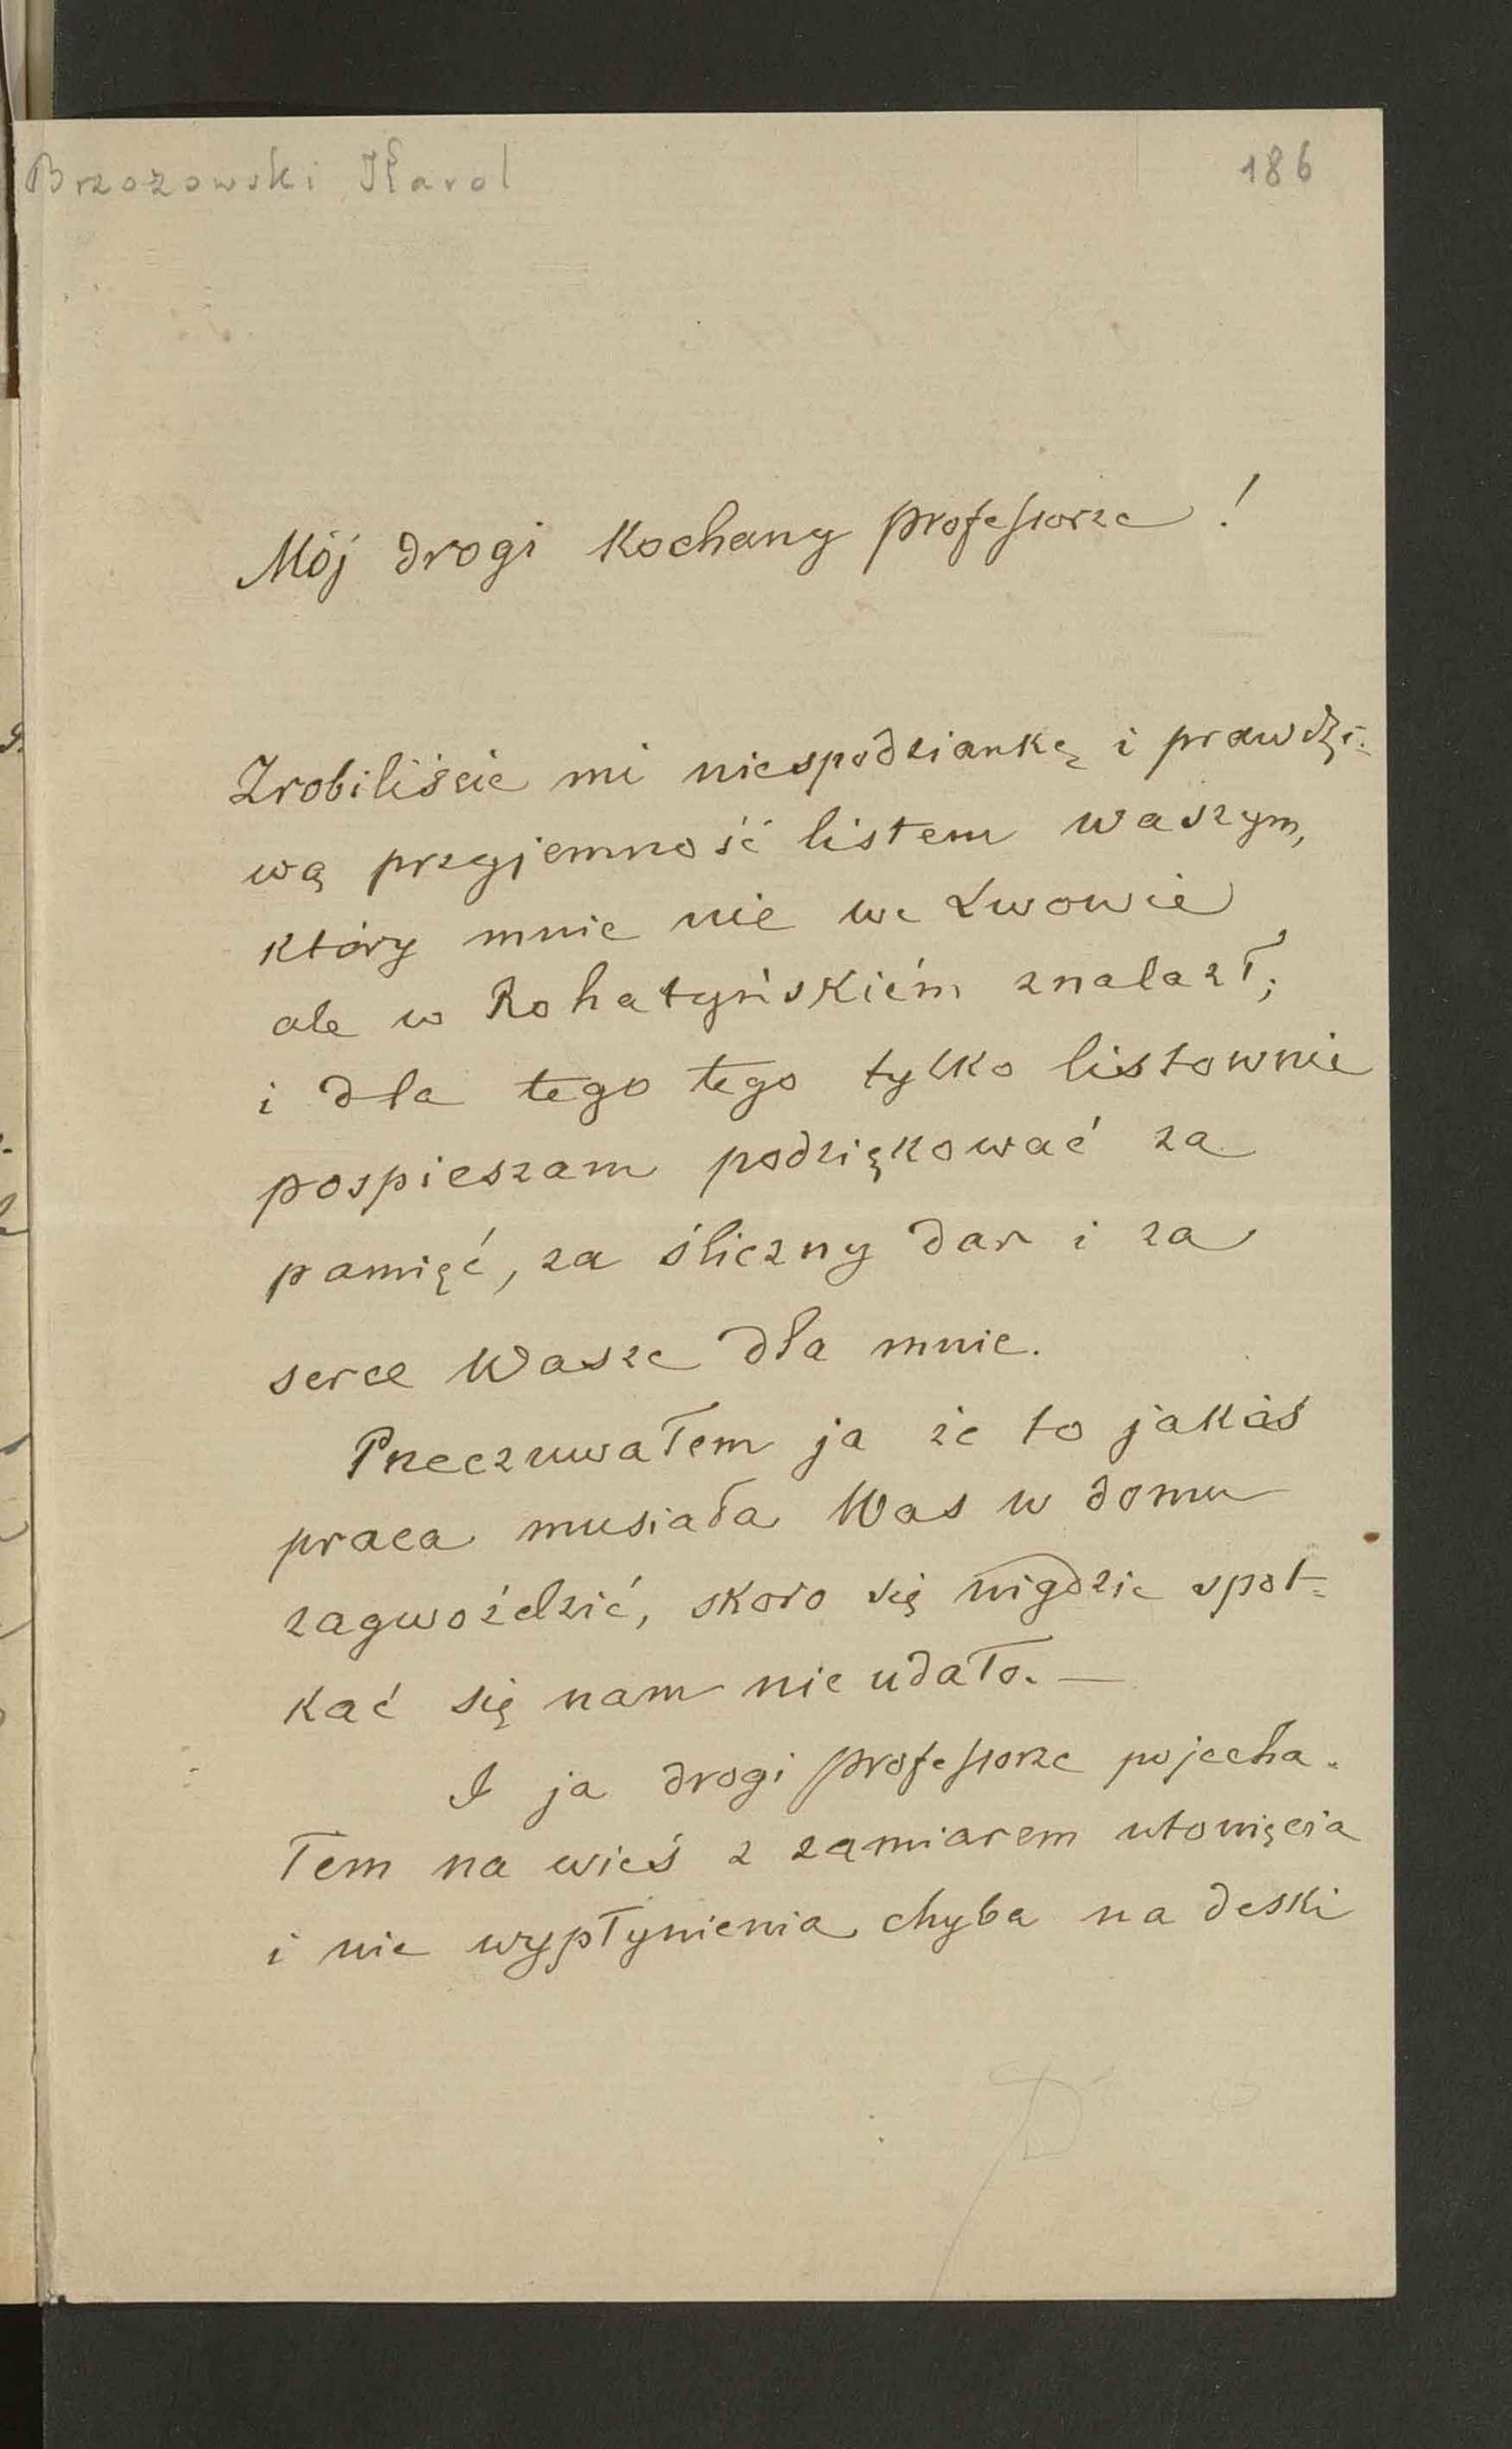 Brzozowski Karol
186
Mój drogi Kochany professorze!
Zrobiliście mi niespodziankę i prawdzi-
wą przyjemność listem waszym,
który mnie nie we Lwowie
ale w Rohatyńskiém znalazł;
i dla tego tego tylko listownie
pospieszam podziękować za
pamięć, za śliczny dar i za
serce Wasze dla mnie.
Przeczuwałem ja że to jakaś
praca musiała Was w domu
zagwoździć, skoro się nigdzie spot=
kać się nam nie udało. —
I ja drogi professorze pojecha-
łem na wieś z zamiarem utonięcia
i nie wypłynienia chyba na deski